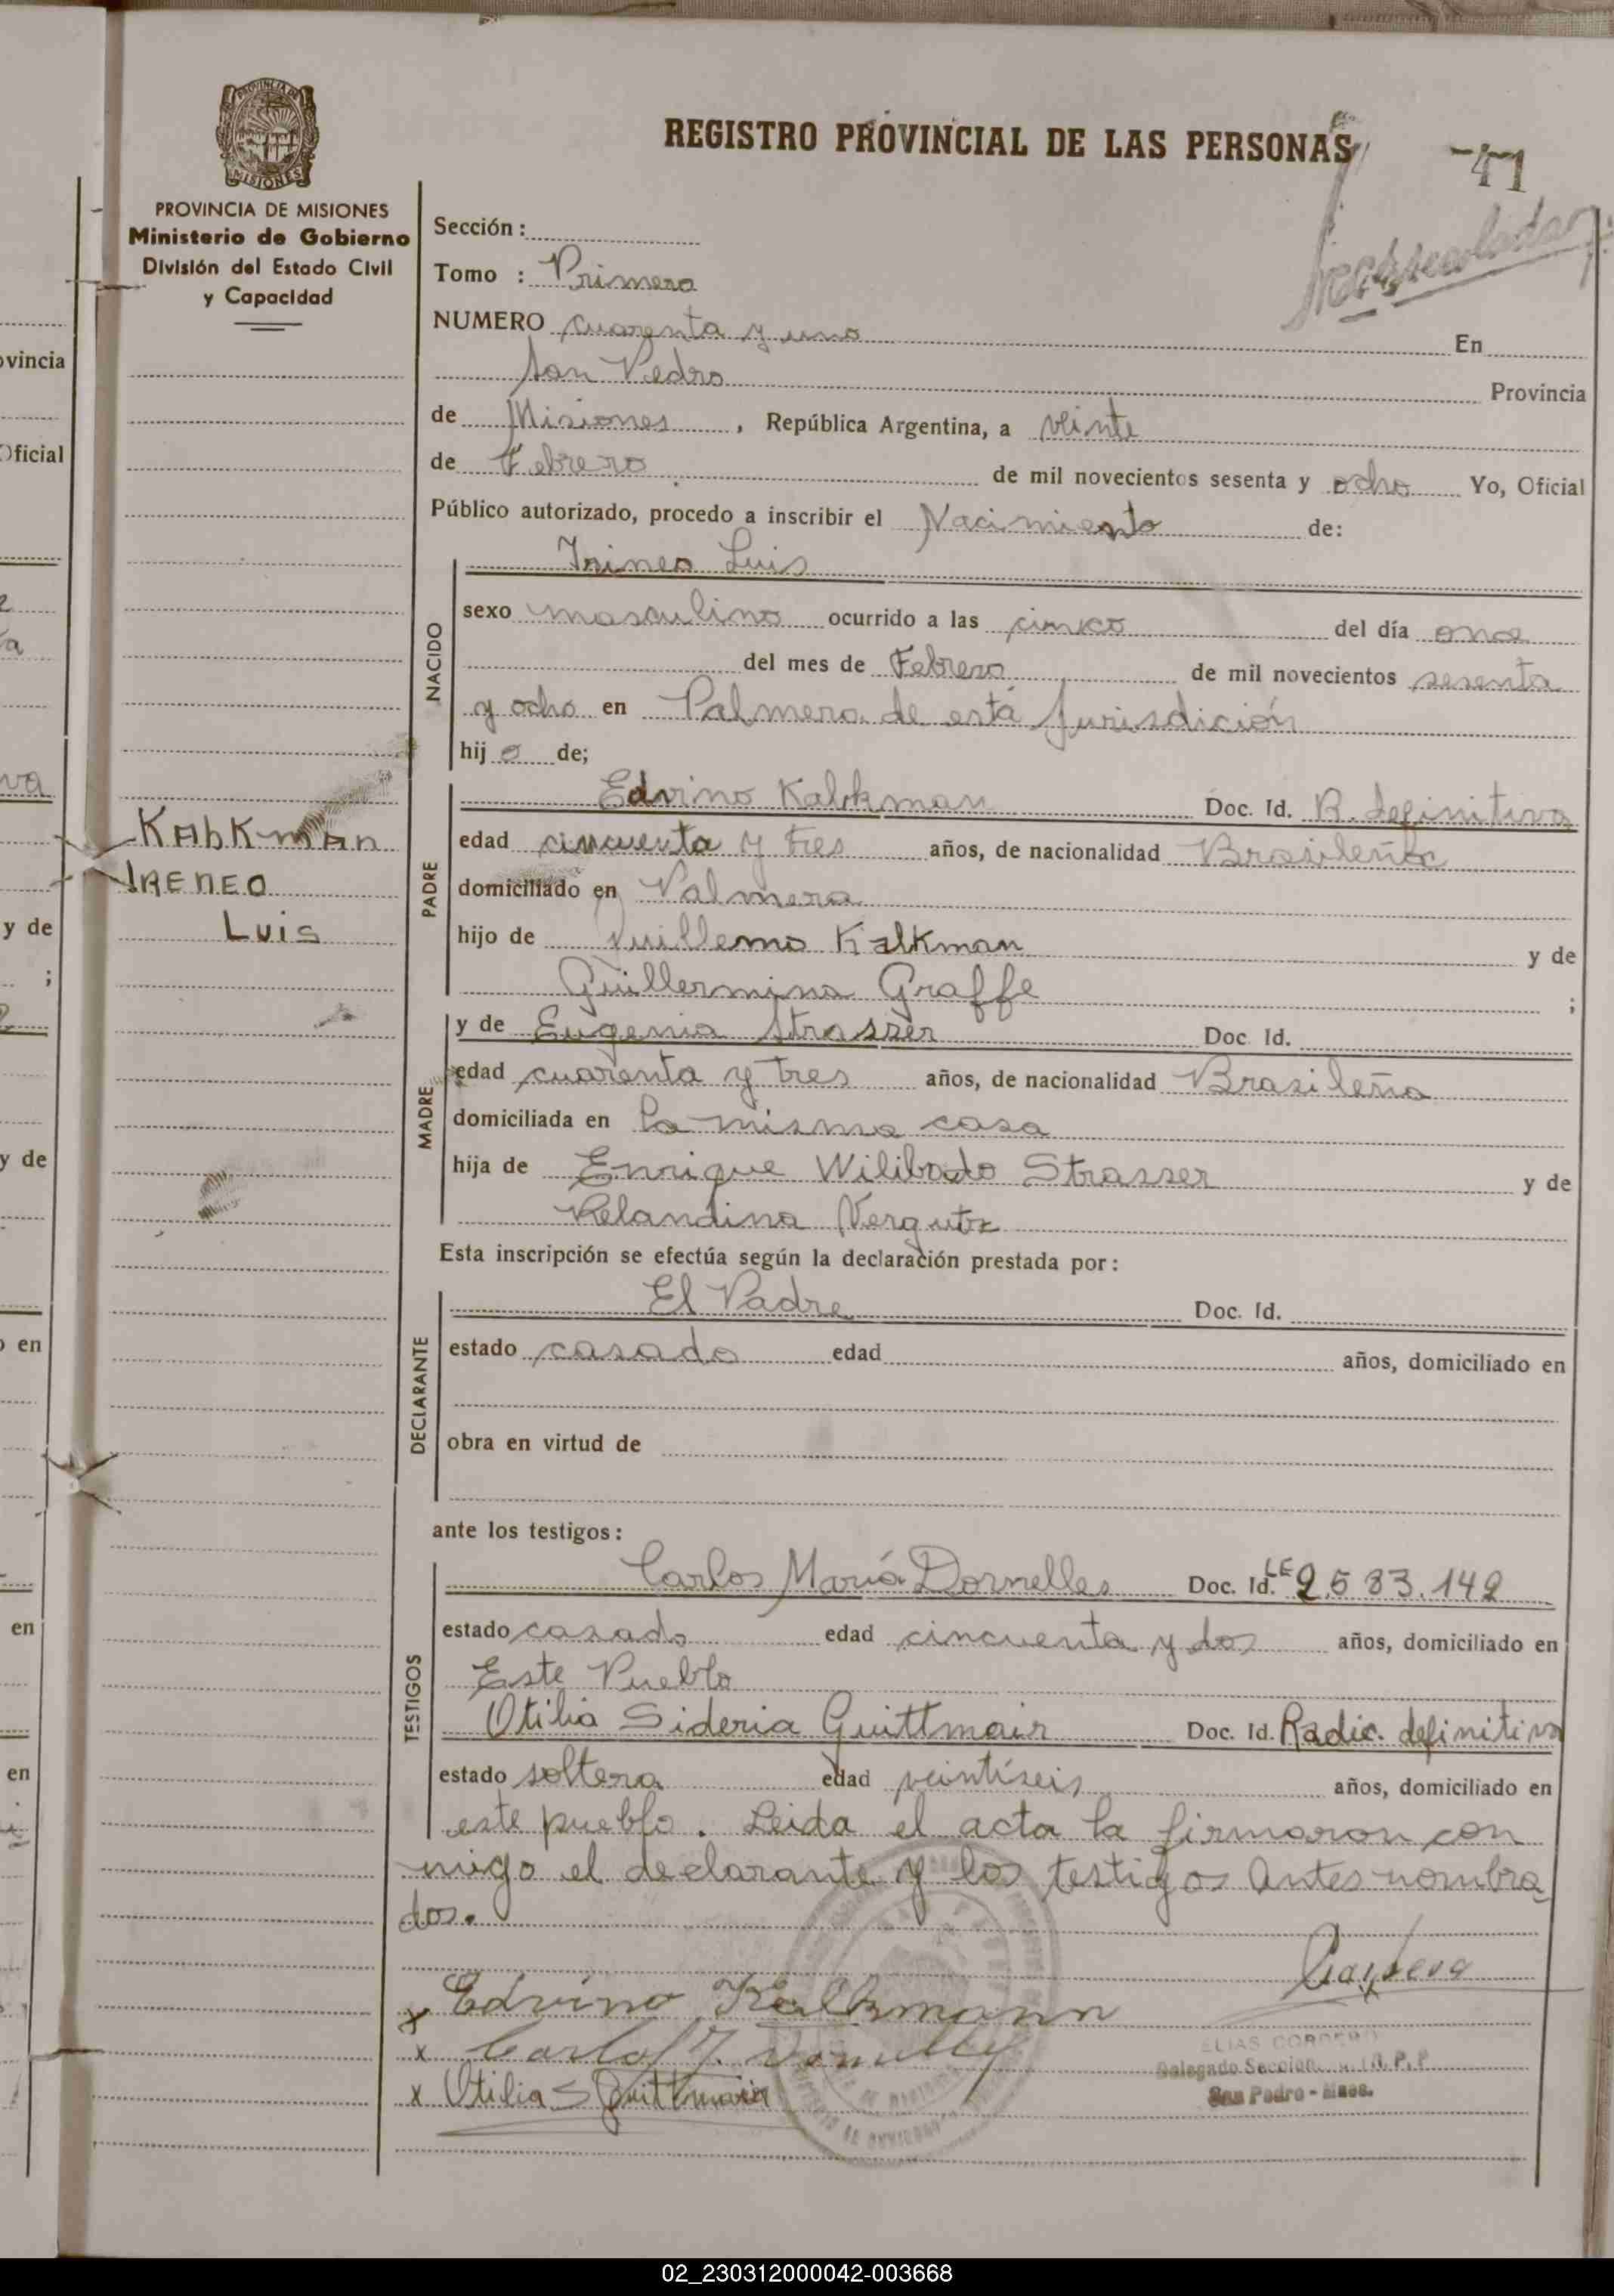 REGISTRO PROVINCIAL DE LAS PERSONAS
-41
PROVINCIA DE
MISIONES
PROVINCIA DE MISIONES
Ministerio de Gobierno
División del Estado Civil
y Capacidad
Sección:
Tomo : Primero
NUMERO cuarenta y uno En
San Pedro Provincia
de Misiones, República Argentina, a veinte
de Febrero de mil novecientos sesenta y ocho Yo, Oficial
Público autorizado, procedo a inscribir el Nacimiento de:
NACIDO
Irineo Luis
sexo masculino ocurrido a las cinco del día once
del mes de Febrero de mil novecientos sesenta
y ocho en Palmera de está Jurisdición
hijo de;
PADRE
Edvino Kalkman Doc. Id. R. definitiva
edad cincuenta y tres años, de nacionalidad Brasileña
domiciliado en Palmera
hijo de Guillermo Kalkman y de
Guillermina Graffe ;
KAlKmAn
IRENEO
Luis
MADRE
y de Eugenia Strasser Doc. Id.
edad cuarenta y tres años, de nacionalidad Brasileña
domiciliada en la misma casa
hija de Enrique Wilibado Strasser y de
Relandina Vergutz
Esta inscripción se efectúa según la declaración prestada por:
DECLARANTE
El Padre Doc. Id.
estado casado edad años, domiciliado en
obra en virtud de
ante los testigos:
TESTIGOS
Carlos María Dornelles Doc. Id. LE 2.583.142
estado casado edad cincuenta y dos años, domiciliado en
Este Pueblo
Otilia Sideria Guittmair Doc. Id. Radic. definitiva
estado soltera edad veintiseis años, domiciliado en
este pueblo. Leida el acta la firmaron con
migo el declarante y los testigos antes nombra
dos.
x Edvino Kalkmann
x Carlos M. Dornelles
x Otilia S Guittmair
ELIAS CORDERO
San Pedro - Mnes.
ovincia
Oficial
y de
;
y de
o en
en
en
02_230312000042-003668